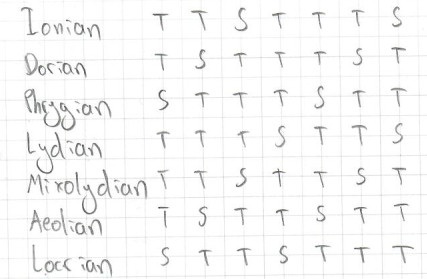 Ionian T T S T T T S
Dorian T S T T T S T
Phrygian S T T T S T T
Lydian T T T S T T S
Mixolydian T T S T T S T
Aeolian T S T T S T T
Locrian S T T S T T T